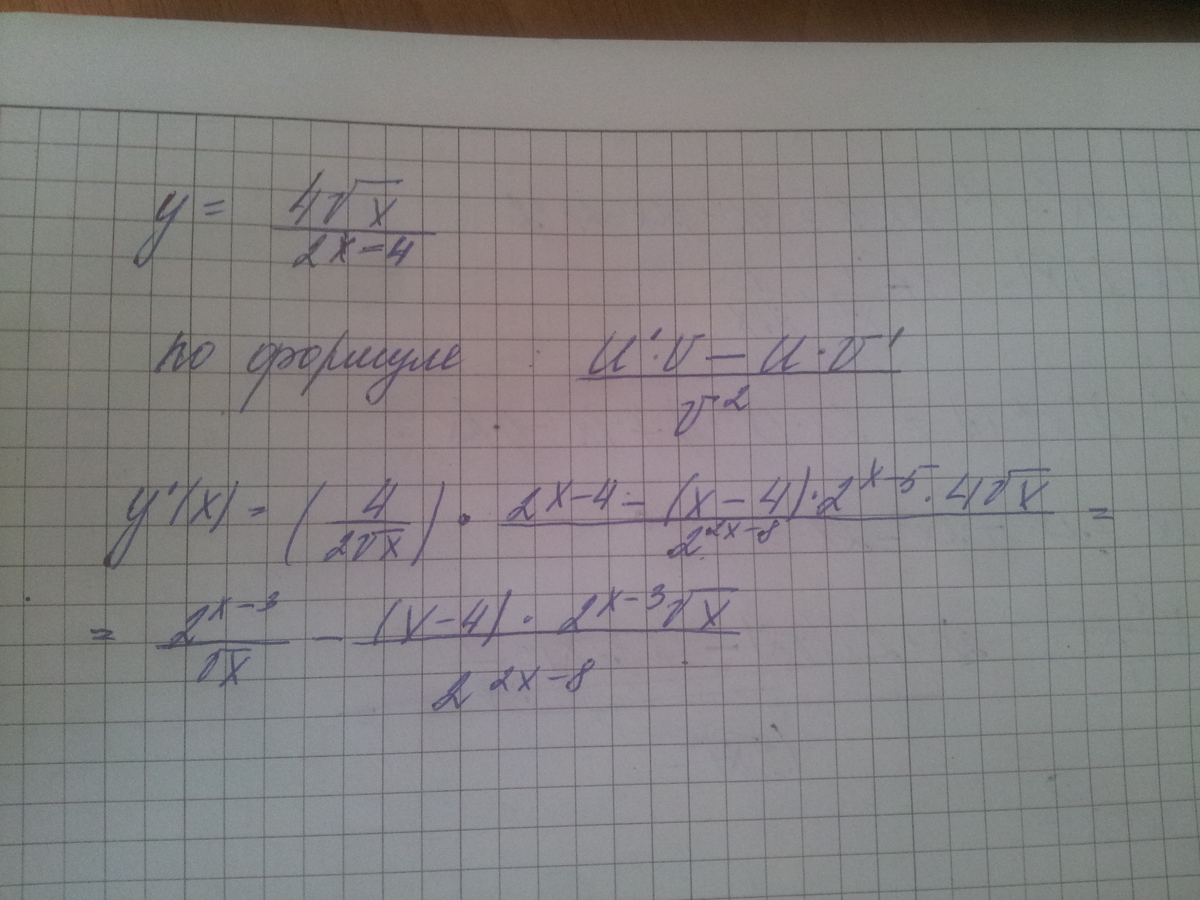 y = 4√x / 2x-4
по формуле : u'·v - u·v' / v²
y'(x) = (4 / 2√x) · 2^(x-4) - (x-4)·2^(x-5)·4√x / 2^(2x-8) =
= 2^(x-3) / √x - (x-4)·2^(x-3)√x / 2^(2x-8)